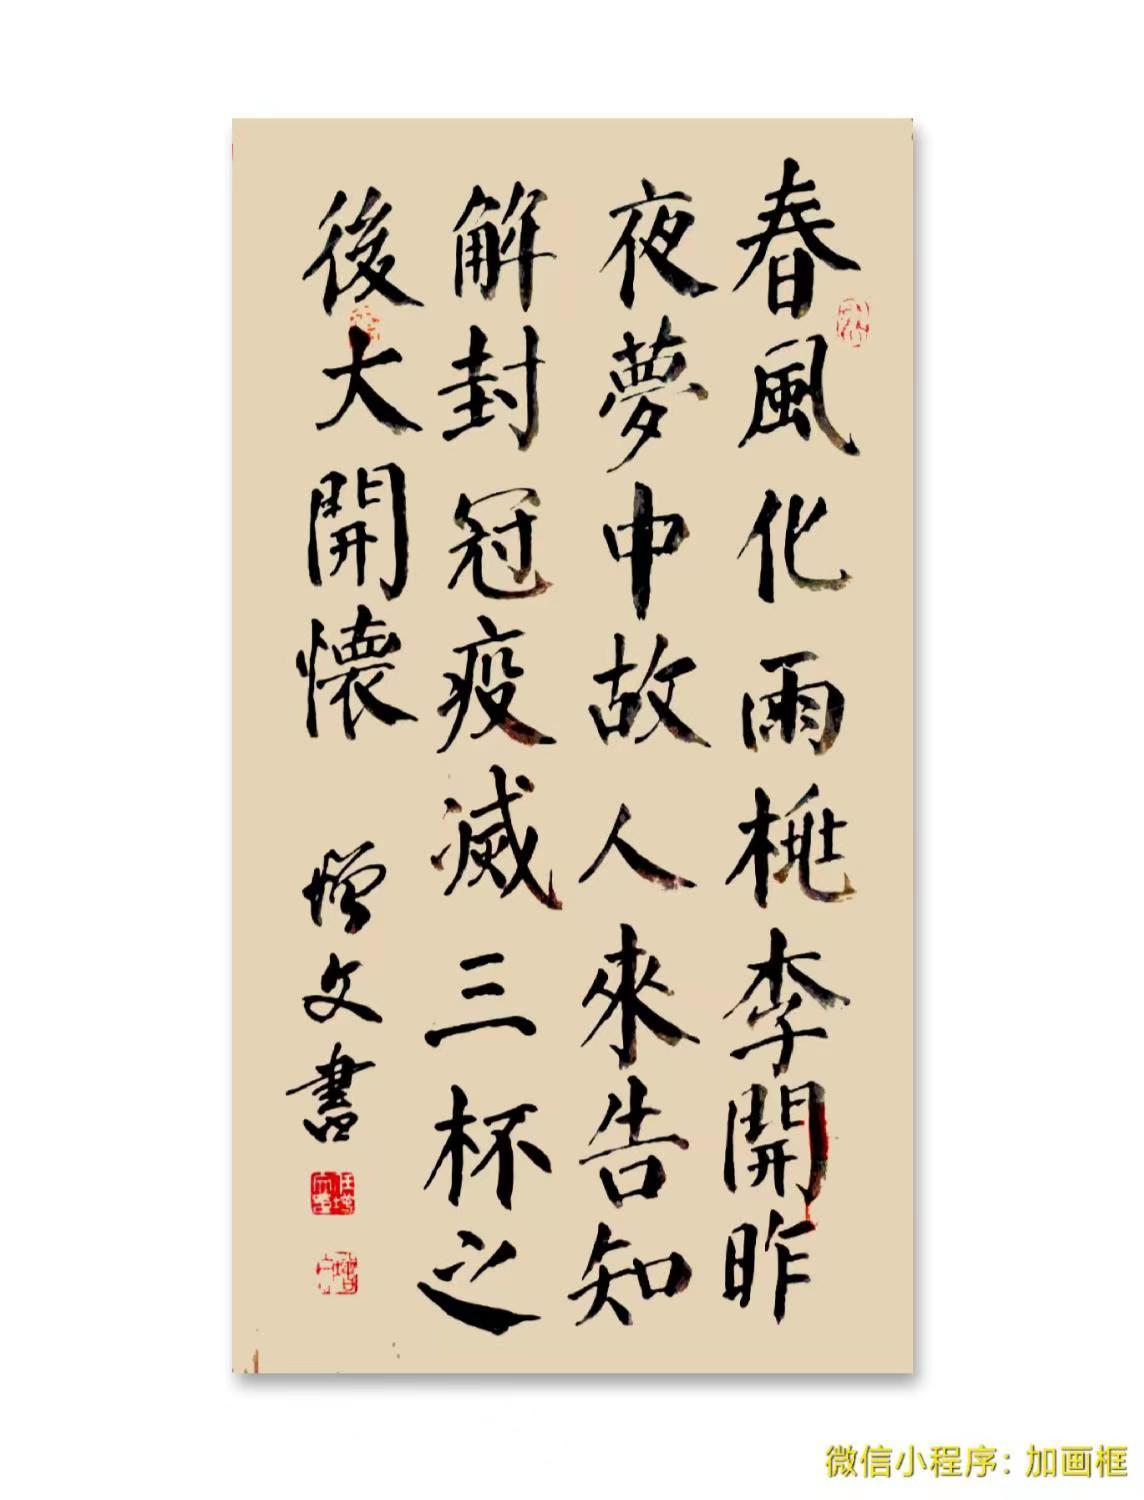 春風化雨桃李開昨
夜夢中故人來告知
解封冠疫滅三杯之
後大開懷
增文書
微信小程序：加画框